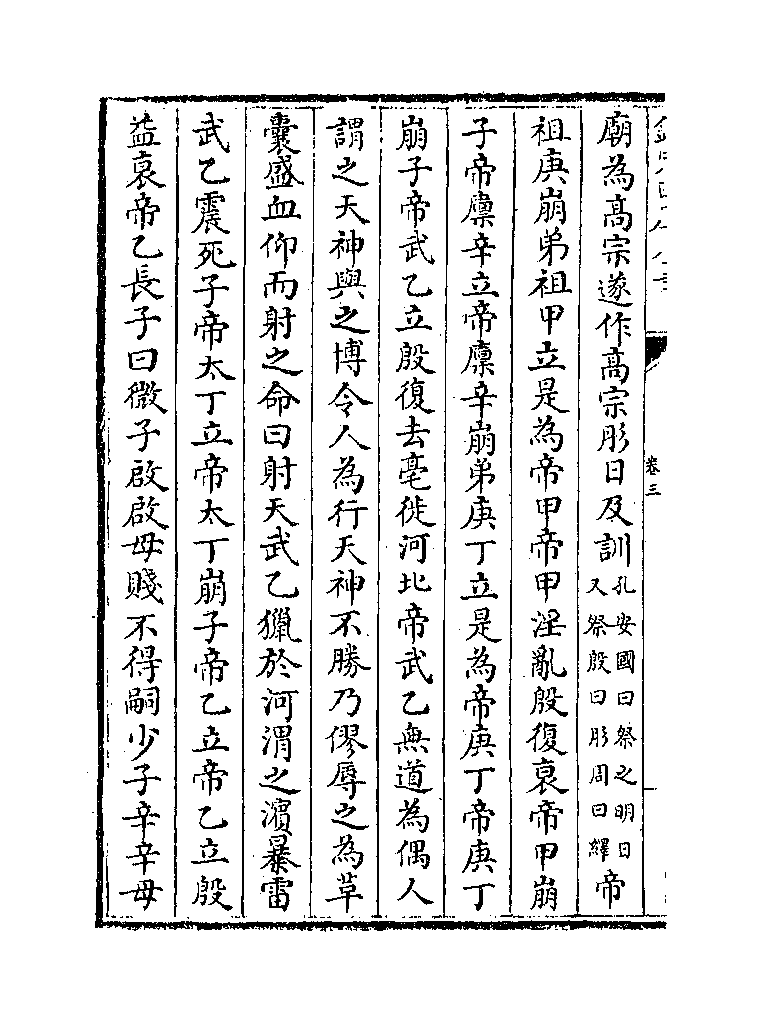 卷三
廟為髙宗遂作髙宗肜日及訓孔安國曰祭之明日又祭殷曰肜周曰繹帝
祖庚崩弟祖甲立是為帝甲帝甲淫亂殷復衰帝甲崩
子帝廩辛立帝廩辛崩弟庚丁立是為帝庚丁帝庚丁
崩子帝武乙立殷復去亳徙河北帝武乙無道為偶人
謂之天神與之博令人為行天神不勝乃僇辱之為草
囊盛血仰而射之命曰射天武乙獵於河渭之濵暴雷
武乙震死子帝太丁立帝太丁崩子帝乙立帝乙立殷
益衰帝乙長子曰微子啟啟母賤不得嗣少子辛辛母